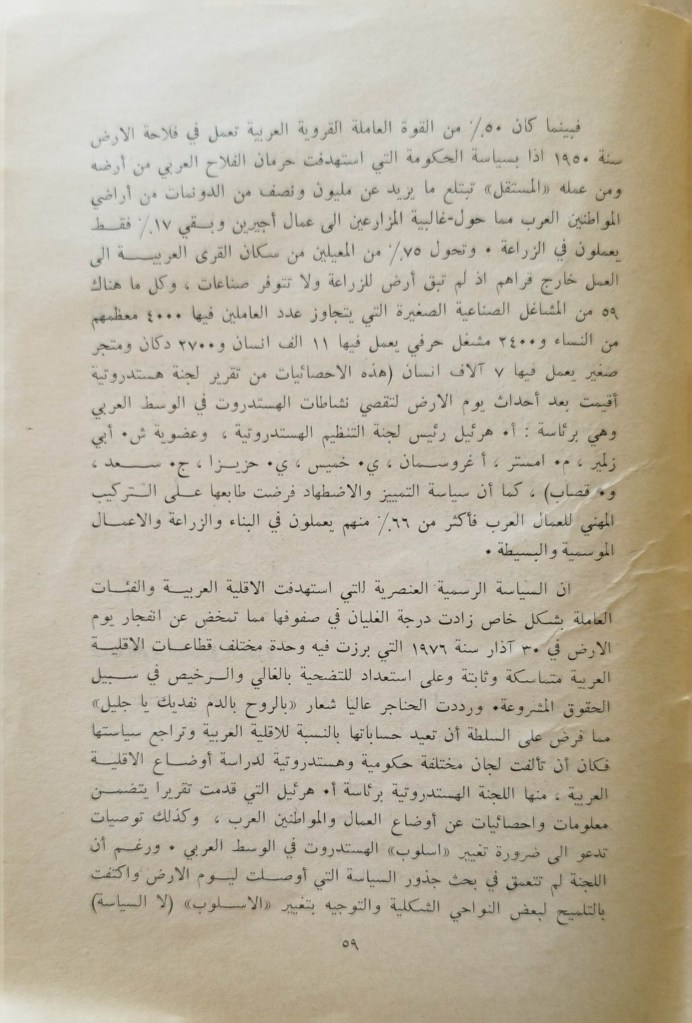 فبينما كان ٥٠٪ من القوة العاملة القروية العربية تعمل في فلاحة الارض
سنة ١٩٥٠ اذا بسياسة الحكومة التي استهدفت حرمان الفلاح العربي من أرضه
ومن عمله «المستقل» تبتلع ما يزيد عن مليون ونصف من الدونمات من أراضي
المواطنين العرب مما حول-غالبية المزارعين الى عمال أجيرين وبقي ١٧٪ فقط
يعملون في الزراعة • وتحول ٧٥٪ من المعيلين من سكان القرى العربية الى
العمل خارج قراهم اذ لم تبق أرض للزراعة ولا تتوفر صناعات ، وكل ما هناك
٥٩ من المشاغل الصناعية الصغيرة التي يتجاوز عدد العاملين فيها ٤٠٠٠ معظمهم
من النساء و٢٤٠٠ مشغل حرفي يعمل فيها ١١ الف انسان و٢٧٠٠ دكان ومتجر
صغير يعمل فيها ٧ آلاف انسان (هذه الاحصائيات من تقرير لجنة هستدروتية
أقيمت بعد أحداث يوم الارض لتقصي نشاطات الهستدروت في الوسط العربي
وهي برئاسة : أ• هرئيل رئيس لجنة التنظيم الهستدروتية ، وعضوية ش• أبي
زلمير ، م• امستر ، أ غروسمان ، ي• خميس ، ي• حزيزا ، ج• سعد ،
و• قصاب) ، كما أن سياسة التمييز والاضطهاد فرضت طابعها على التركيب
المهني للعمال العرب فأكثر من ٦٦٪ منهم يعملون في البناء والزراعة والاعمال
الموسمية والبسيطة •
ان السياسة الرسمية العنصرية للتي استهدفت الاقلية العربية والفئات
العاملة بشكل خاص زادت درجة الغليان في صفوفها مما تمخض عن انفجار يوم
الارض في ٣٠ آذار سنة ١٩٧٦ التي برزت فيه وحدة مختلف قطاعات الاقلية
العربية متماسكة وثابتة وعلى استعداد للتضحية بالغالي والرخيص في سبيل
الحقوق المشروعة• ورددت الحناجر عاليا شعار «بالروح بالدم نفديك يا جليل»
مما فرض على السلطة أن تعيد حساباتها بالنسبة للاقلية العربية وتراجع سياستها
فكان أن تألفت لجان مختلفة حكومية وهستدروتية لدراسة أوضاع الاقلية
العربية ، منها اللجنة الهستدروتية برئاسة أ• هرئيل التي قدمت تقريرا يتضمن
معلومات واحصائيات عن أوضاع العمال والمواطنين العرب ، وكذلك توصيات
تدعو الى ضرورة تغيير «اسلوب» الهستدروت في الوسط العربي • ورغم أن
اللجنة لم تتعمق في بحث جذور السياسة التي أوصلت ليوم الارض واكتفت
بالتلميح لبعض النواحي الشكلية والتوجيه بتغيير «الاسلوب» (لا السياسة)
٥٩